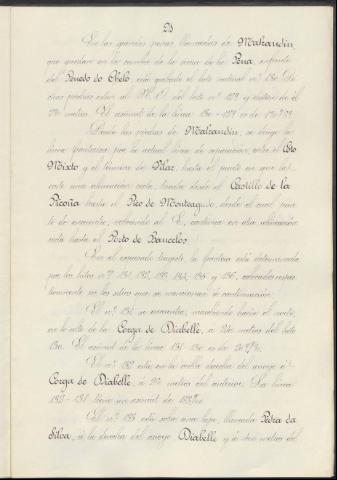 23
En las grandes peñas, llamadas de Matrandín,
que quedan en la cumbre de la sierra de la Pena, enfrente
del Penedo do Chelo, está grabado el hito natural nº 130.
Otras piedras están al N. O. del hito nº 129 y distan de él
metros. El azimut de la línea 130 - 129 es de
Desde las piedras de Matrandín, se dirige la
línea fronteriza por la actual línea de separación entre el Coto
Mixto y el término de Vilar, hasta el punto en que la
corta una alineación recta, tirada desde el Castillo de la
Picoña hasta el Pico de Monteagudo, desde el cual pun-
to de encuentro, volviendo al E., continúa en otra alineación
recta hasta el Porto de Bancelos.
En el expresado trayecto, la frontera está determinada
por los hitos nos 131, 132, 133, 134, 135 y 136, colocados respec-
tivamente en los sitios que se mencionan á continuación:
El nº 131 se encuentra, marchando hacia el norte,
en lo alto de la Corga de Diabelle, á metros del hito
130. El azimut de la línea 131-130 es de
El nº 132 está en la orilla derecha del arroyo de
Corga de Diabelle, á metros del anterior. La línea
132 - 131 tiene un azimut de
El nº 133 está sobre una laja, llamada Pedra da
Silva, á la derecha del arroyo Diabelle y á metros del